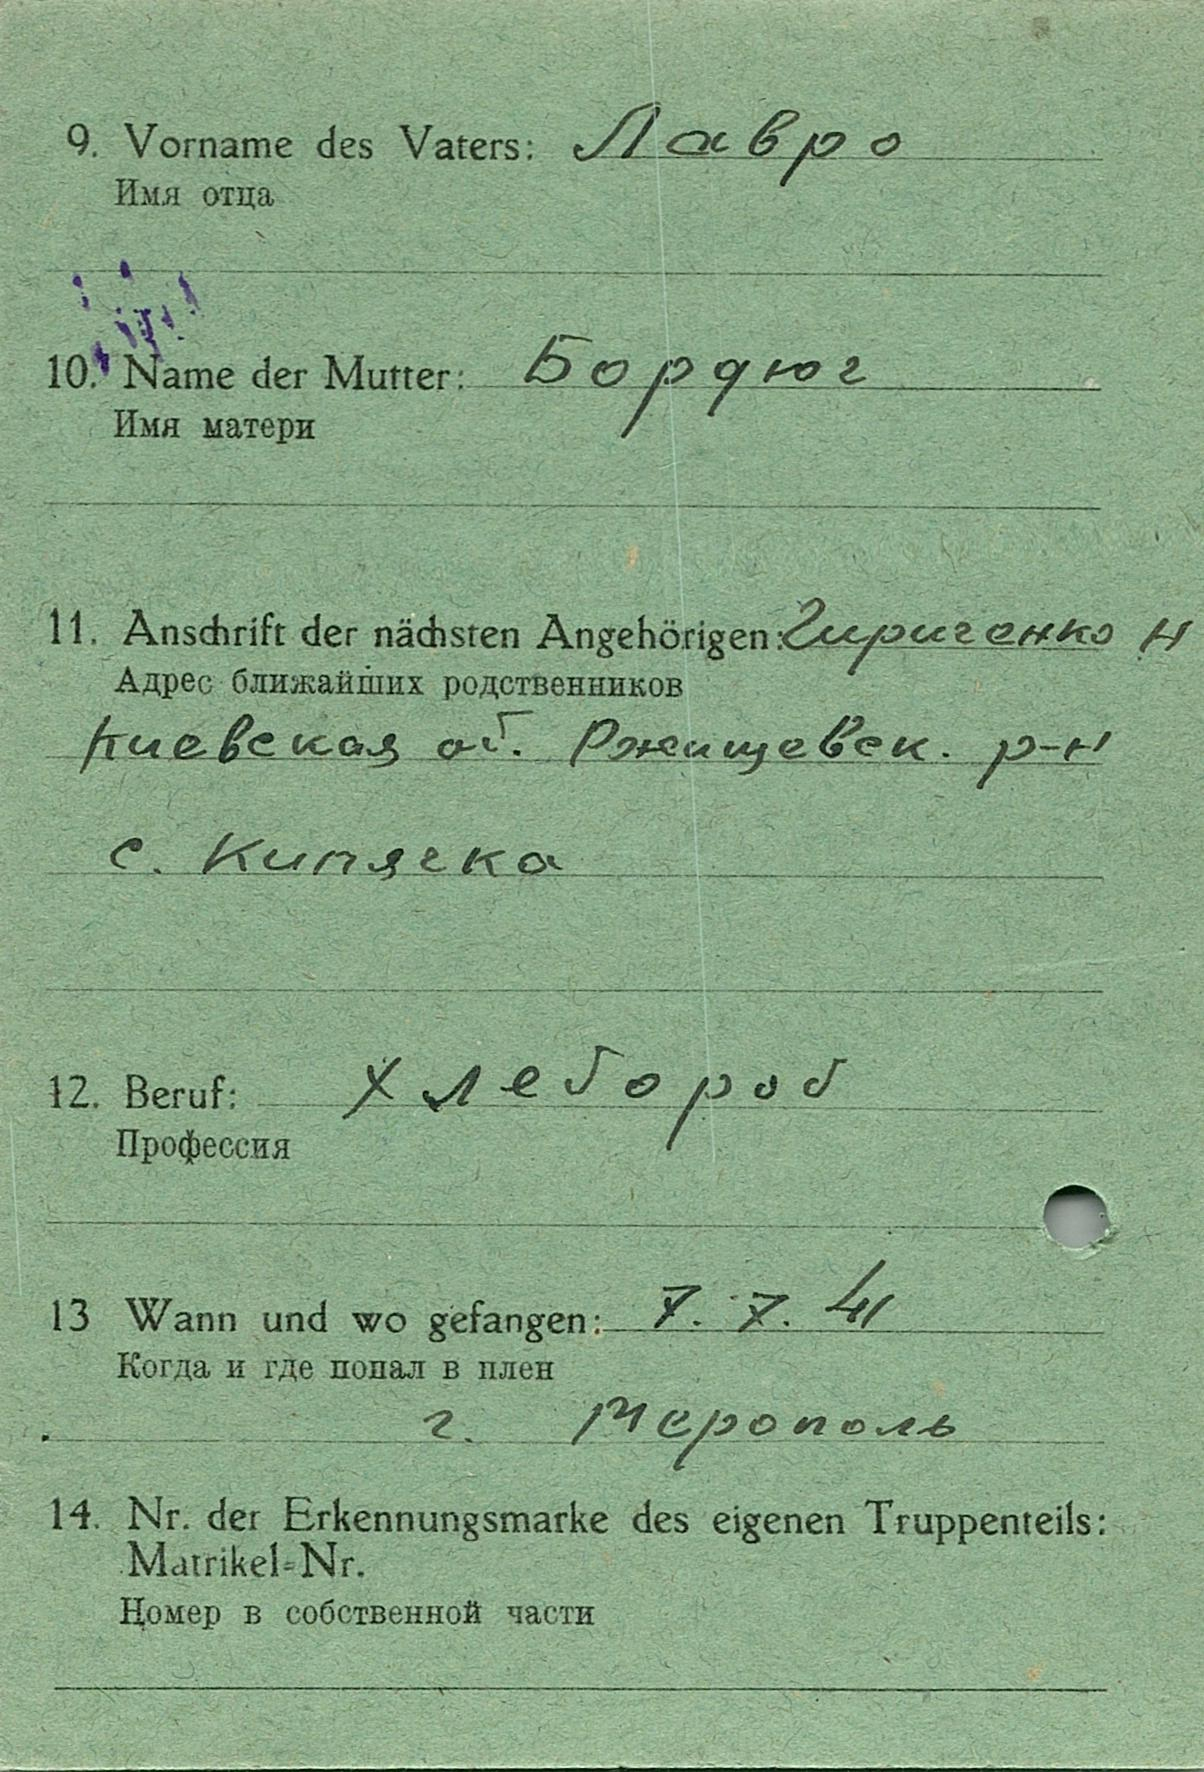 9. Vorname des Vaters: Лавро
Имя отца
10. Name der Mutter: Бордюг
Имя матери
11. Anschrift der nächsten Angehörigen: Гириченко Н
Адрес ближайших родственников
Киевская об. Ржищевск. р-н
с. Кипячка
12. Beruf: Хлебороб
Профессия
13 Wann und wo gefangen: 7. 7. 41
Когда и где попал в плен
г. Мерополь
14. Nr. der Erkennungsmarke des eigenen Truppenteils:
Matrikel-Nr.
Номер в собственной части